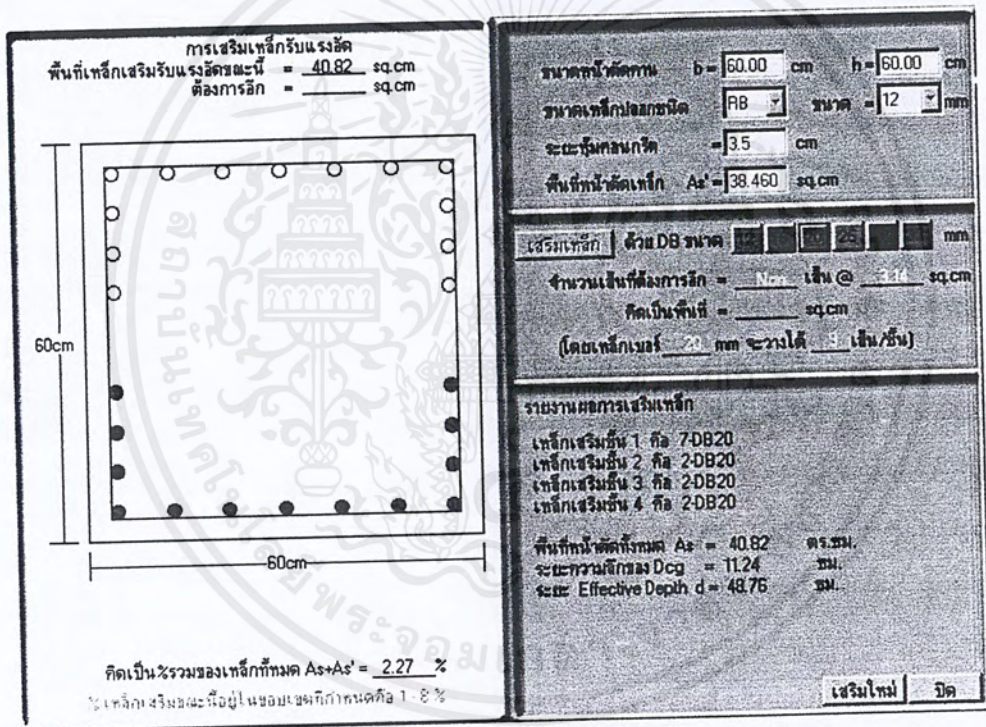 การเสริมเหล็กรับแรงอัด
พื้นที่เหล็กเสริมรับแรงอัดขณะนี้ = 40.82 sq.cm
ต้องการอีก = sq.cm
60cm
60cm
คิดเป็น%รวมของเหล็กทั้หมด As+As' = 2.27 %
% เหล็กเสริมขณะนี้อยู่ในขอบเขตที่กำหนดคือ 1 - 8 %
ขนาดหน้าตัดคาน b = 60.00 cm h = 60.00 cm
ขนาดเหล็กปลอกชนิด RB ขนาด = 12 mm
ระยะหุ้มคอนกรีต = 3.5 cm
พื้นที่หน้าตัดเหล็ก As' = 38.460 sq.cm
เสริมเหล็ก ด้วย DB ขนาด 12 20 25 mm
จำนวนเส้นที่ต้องการอีก = Non เส้น @ 3.14 sq.cm
คิดเป็นพื้นที่ = sq.cm
(โดยเหล็กเบอร์ 20 mm จะวางได้ เส้น/ชั้น)
รายงานผลการเสริมเหล็ก
เหล็กเสริมชั้น 1 คือ 7-DB20
เหล็กเสริมชั้น 2 คือ 2-DB20
เหล็กเสริมชั้น 3 คือ 2-DB20
เหล็กเสริมชั้น 4 คือ 2-DB20
พื้นที่หน้าตัดทั้งหมด As = 40.82 ตร.ซม.
ระยะความลึกของ Dcg = 11.24 ซม.
ระยะ Effective Depth d = 48.76 ซม.
เสริมใหม่ ปิด